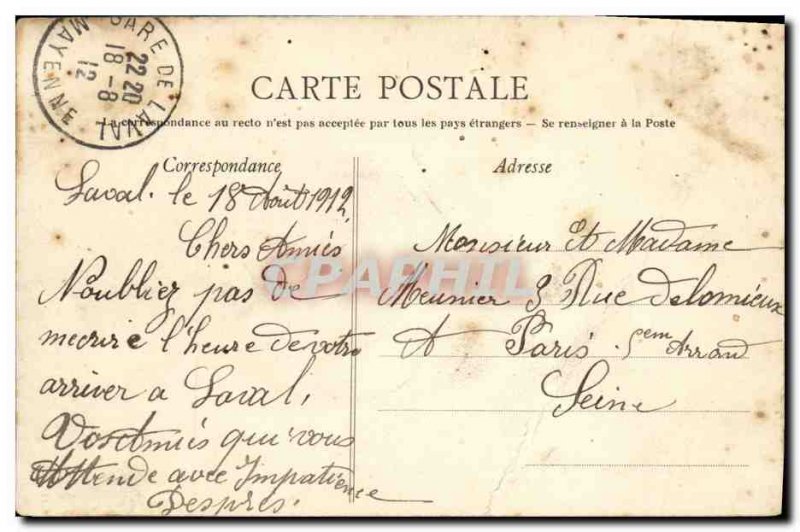 GARE DE LAVAL
22 20
18-8
12
MAYENNE
CARTE POSTALE
La correspondance au recto n'est pas acceptée par tous les pays étrangers — Se renseigner à la Poste
Correspondance
Laval. le 18 Août 1912
Chers Amies
N'oubliez pas de
mecrire l'heure de votre
arriver a Laval,
Vos Amies qui vous
Attende avec Impatience
Despres.
Adresse
Monsieur Et Madame
Meunier 3 Rue dolomieux
A Paris 5em Arrond
Seine
CPAPHIL